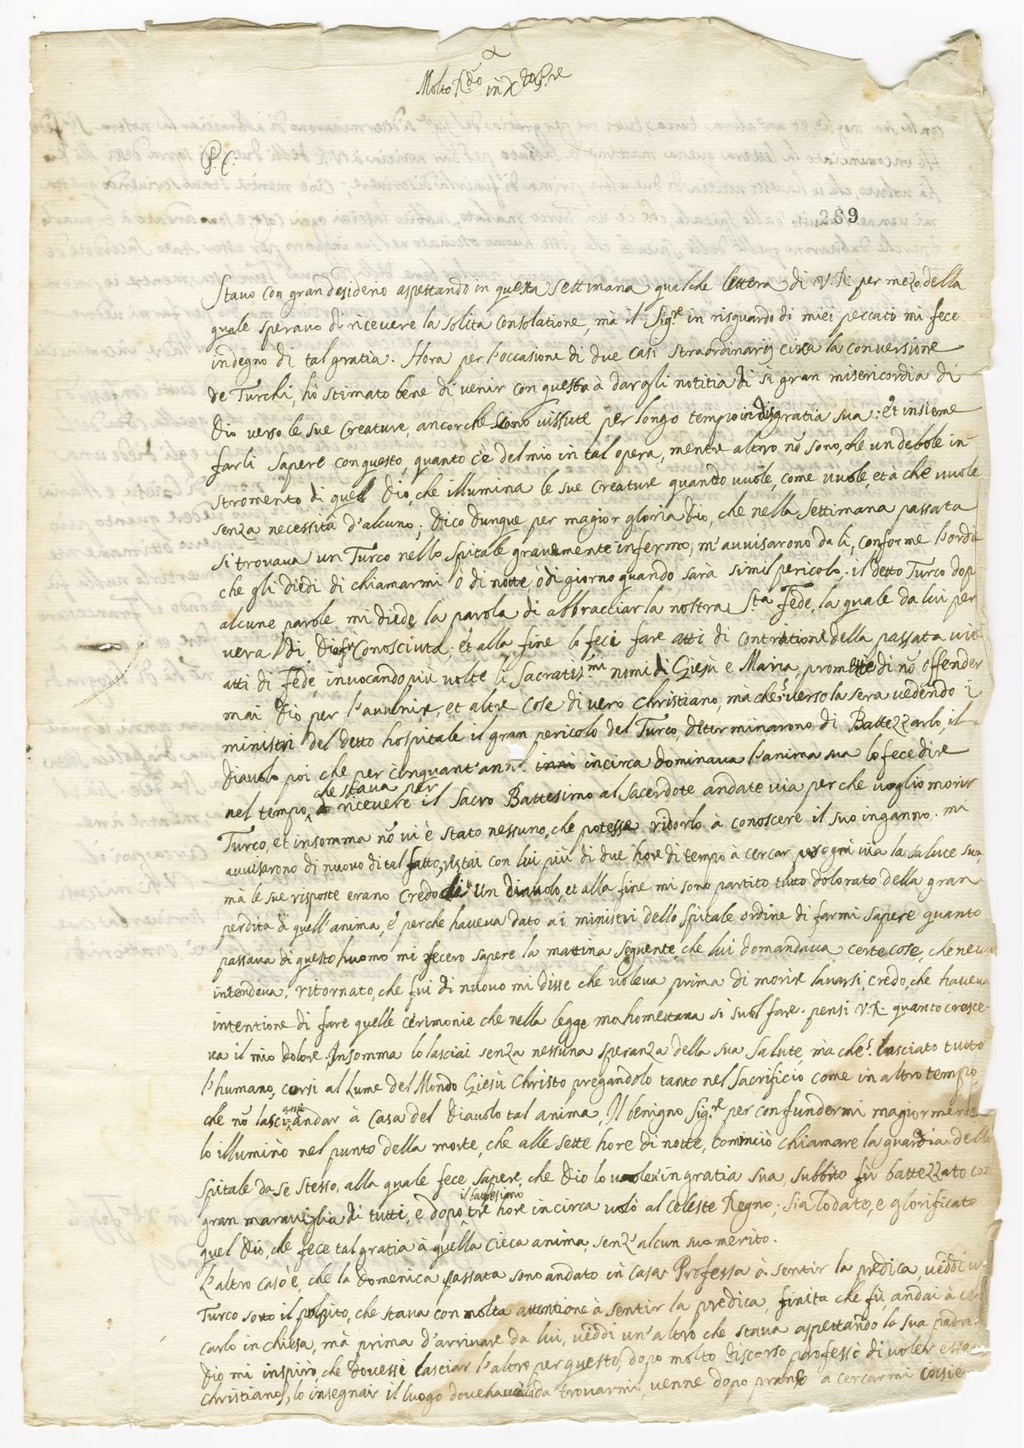 Molto R.do in X.to P.re
P. C.
289
Stavo con gran desiderio aspettando in questa settimana qualche lettera di V.R. per mezo della
quale speravo di ricevere la solita consolatione, mà il Sig.re in risguardo di miei peccati mi fece
indegno di tal gratia. Hora per l'occasione di due casi straordinarij circa la conversione
de Turchi, hò stimato bene di venir con questa à dargli notitia di si gran misericordia di
Dio verso le sue Creature, ancorche siano vissute per longo tempo in disgratia sua: et insieme
farli sapere con questo, quanto c'è del mio in tal opera, mentre altro nõ sono, che un debole in-
stromento di quel Dio, che illumina le sue creature quando vuole, come vuole, et à che vuole
senza necessità d'alcuno; dico dunque per magior gloria Dio, che nella settimana passata
si trovava un Turco nello spitale gravemente infermo, m'avvisarono da li, conforme l'ordi
che gli diedi di chiamarmi ò di notte, ò di giorno quando sarà simil pericolo. il detto Turco dop
alcune parole mi diede la parola di abbracciar la nostra S.ta Fede, la quale da lui per
vera di Dio fù conosciuta, et alla fine lo feci fare atti di contritione della passata vit
atti di Fede, invocando più volte li Sacratis.mi nomi di Giesù e Maria, promette di nõ offender
mai Dio per l'avvenire, et altre cose di vero Christiano, mà che? verso la sera vedendo i
ministri del detto hospitale il gran pericolo del Turco, determinarono di Battezzarlo, il
Diavolo poi che per cinquant'anni incirca dominava l'anima sua lo fece dire
nel tempo, che stava per ricevere il Sacro Battesimo al Sacerdote andate via perche voglio morir
Turco, et insomma nõ vi è stato nessuno, che potesse ridorlo à conoscere il suo inganno. mi
avvisarono di nuovo di tal fatto, restai con lui più di due hore di tempo à cercar per ogni via la salute sua,
mà le sue risposte erano credo di un diavolo, et alla fine mi sono partito tutto dolorato della gran
perdita di quell'anima, e perche haveva dato ai ministri dello spitale ordine di farmi sapere quanto
passava di questo huomo mi fecero sapere la mattina seguente, che lui domandava certe cose, che
intendeva; ritornato, che fui di nuovo mi disse che voleva prima di morire lavarsi, credo, che haveva
intentione di fare quelle cerimonie che nella legge mahomettana si suol fare. pensi V.R. quanto cresce-
va il mio dolore. Insomma lo lasciai senza nessuna speranza della sua salute, mà che? lasciato tutto
l'humano, corsi al Lume del Mondo Giesù Christo pregandolo tanto nel Sacrificio come in altro tempo,
che nõ lasciasse andar à casa del Diavolo tal anima, Il benigno Sig.re per confundermi magiormente
lo illuminò nel punto della morte, che alle sette hore di notte, cominciò chiamare la guardia dello
spitale da se stesso, alla quale fece sapere, che Dio lo voleva in gratia sua, subbito fù battezzato con
gran maraviglia di tutti, e dopò il battesimo tre hore in circa volò al Celeste Regno; sia lodato, e glorificato
quel Dio, che fece tal gratia à quella cieca anima, senz'alcun suo merito.
L'altro caso è, che la Domenica passata sono andato in casa Professa à sentir la predica, veddi un
Turco sotto il pulpito, che stava con molta attentione à sentir la predica, finita che fù, andai à cer-
carlo in chiesa, mà prima d'arrivare da lui, veddi un'altro che stava aspettando la sua padro
Dio mi inspirò, che dovessi lasciar l'altro per questo, dopo molto discorso professò di voler esser
Christiano, lo insegnai il luogo dove haveva da trovarmi, venne dopo pranso à cercarmi